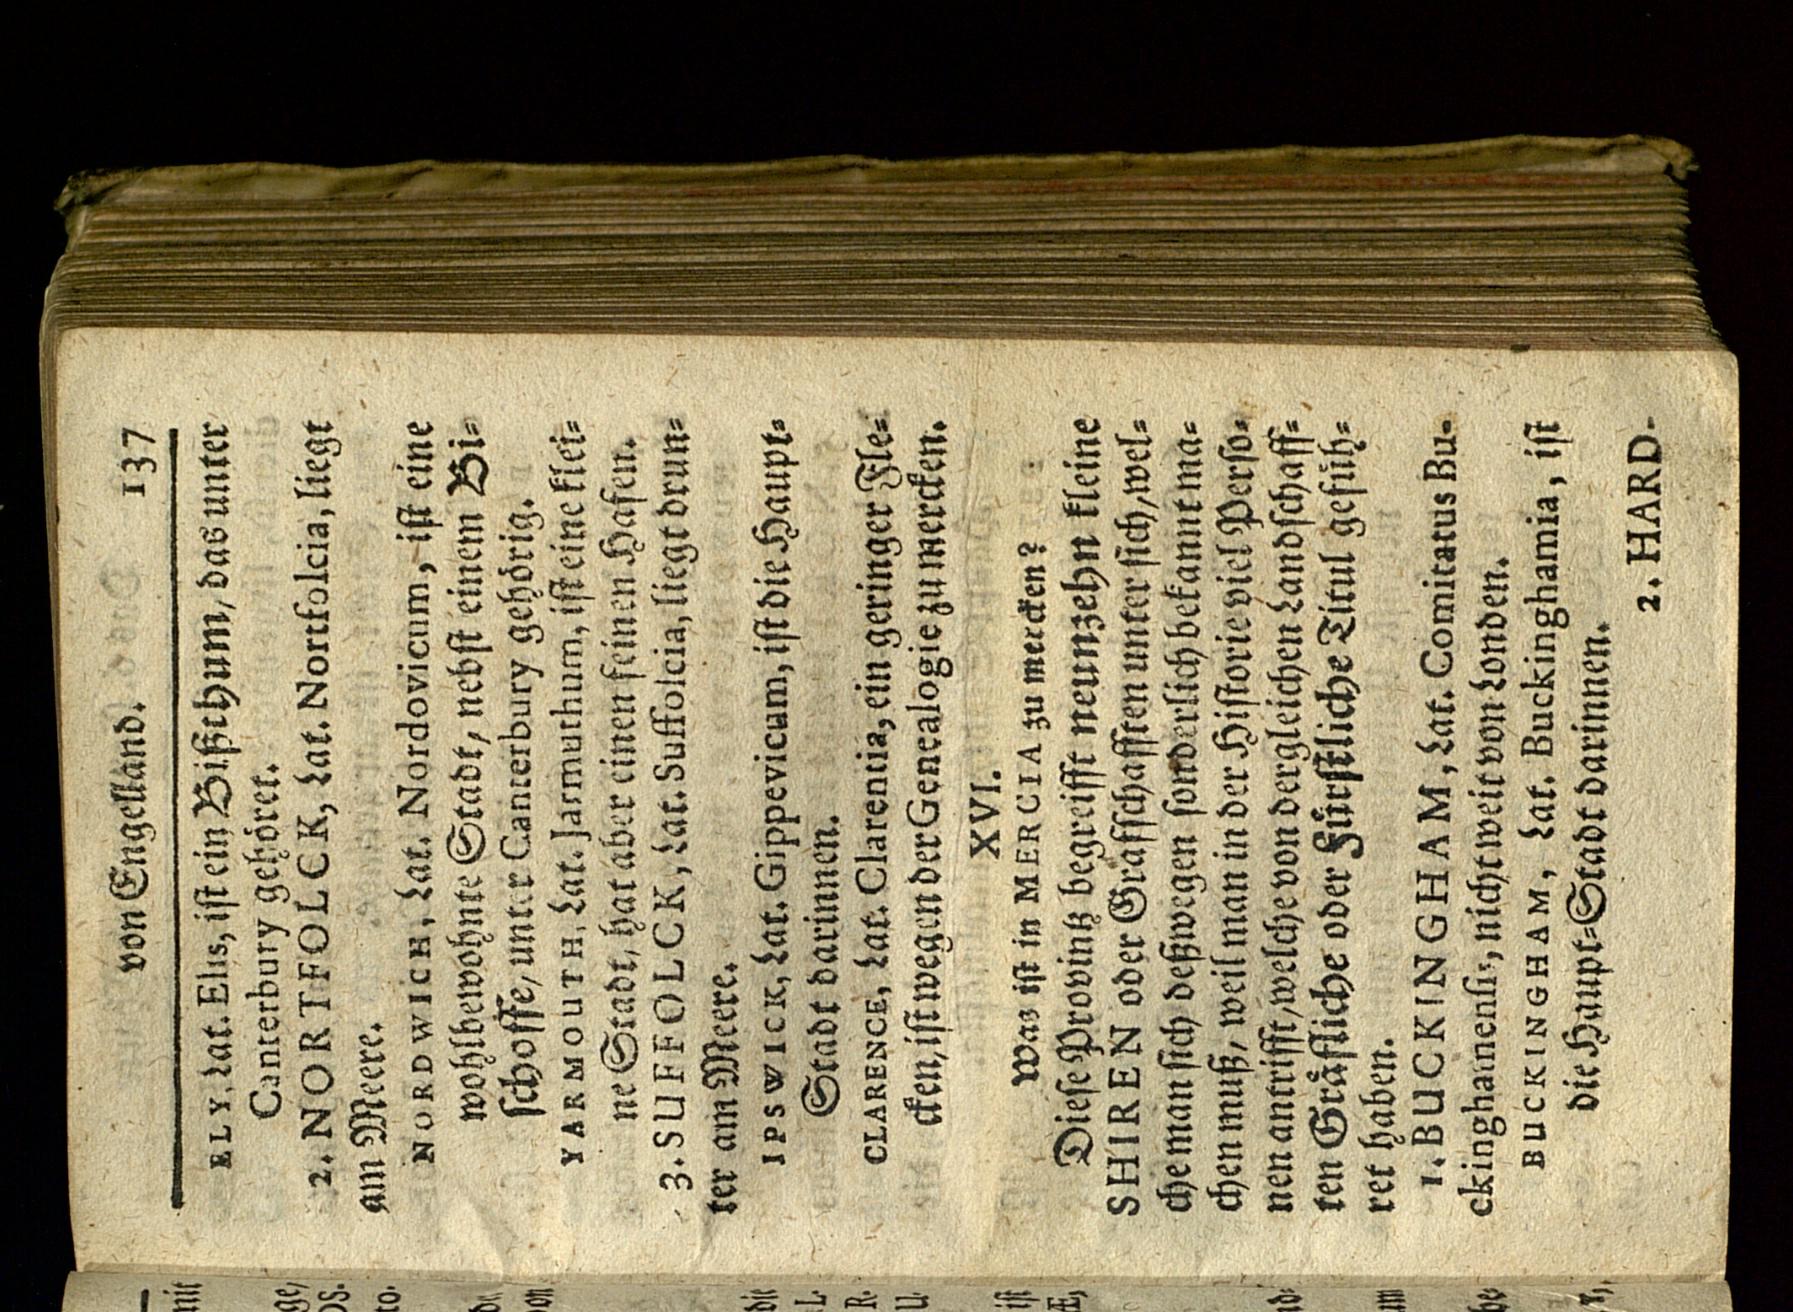 von Engelland. 137
ELY, Lat. Elis, ist ein Bißthum, das unter
Canterbury gehöret.
2. NORTFOLCK, Lat. Nortfolcia, liegt
am Meere.
NORDWICH, Lat. Nordovicum, ist eine
wohlbewohnte Stadt, nebst einem Bi=
schoffe, unter Canterbury gehörig.
YARMOUTH, Lat. Jarmuthum, ist eine klei=
ne Stadt, hat aber einen feinen Hafen.
3. SUFFOLCK, Lat. Suffolcia, liegt drun=
ter am Meere.
IPSWICK, Lat. Gippevicum, ist die Haupt=
Stadt darinnen.
CLARENCE, Lat. Clarentia, ein geringer Fle=
cken, ist wegen der Genealogie zu mercken.
XVI.
Was ist in MERCIA zu mercken?
Diese Provintz begreifft neunzehn kleine
SHIREN oder Graffschafften unter sich, wel=
che man sich deßwegen sonderlich bekannt ma=
chen muß, weil man in der Historie viel Perso=
nen antrifft, welche von dergleichen Landschaff=
ten Gräfliche oder Fürstliche Titul gefüh=
ret haben.
1. BUCKINGHAM, Lat. Comitatus Bu-
ckinghamensis, nicht weit von Londen.
BUCKINGHAM, Lat. Buckinghamia, ist
die Haupt=Stadt darinnen.
2. HARD-